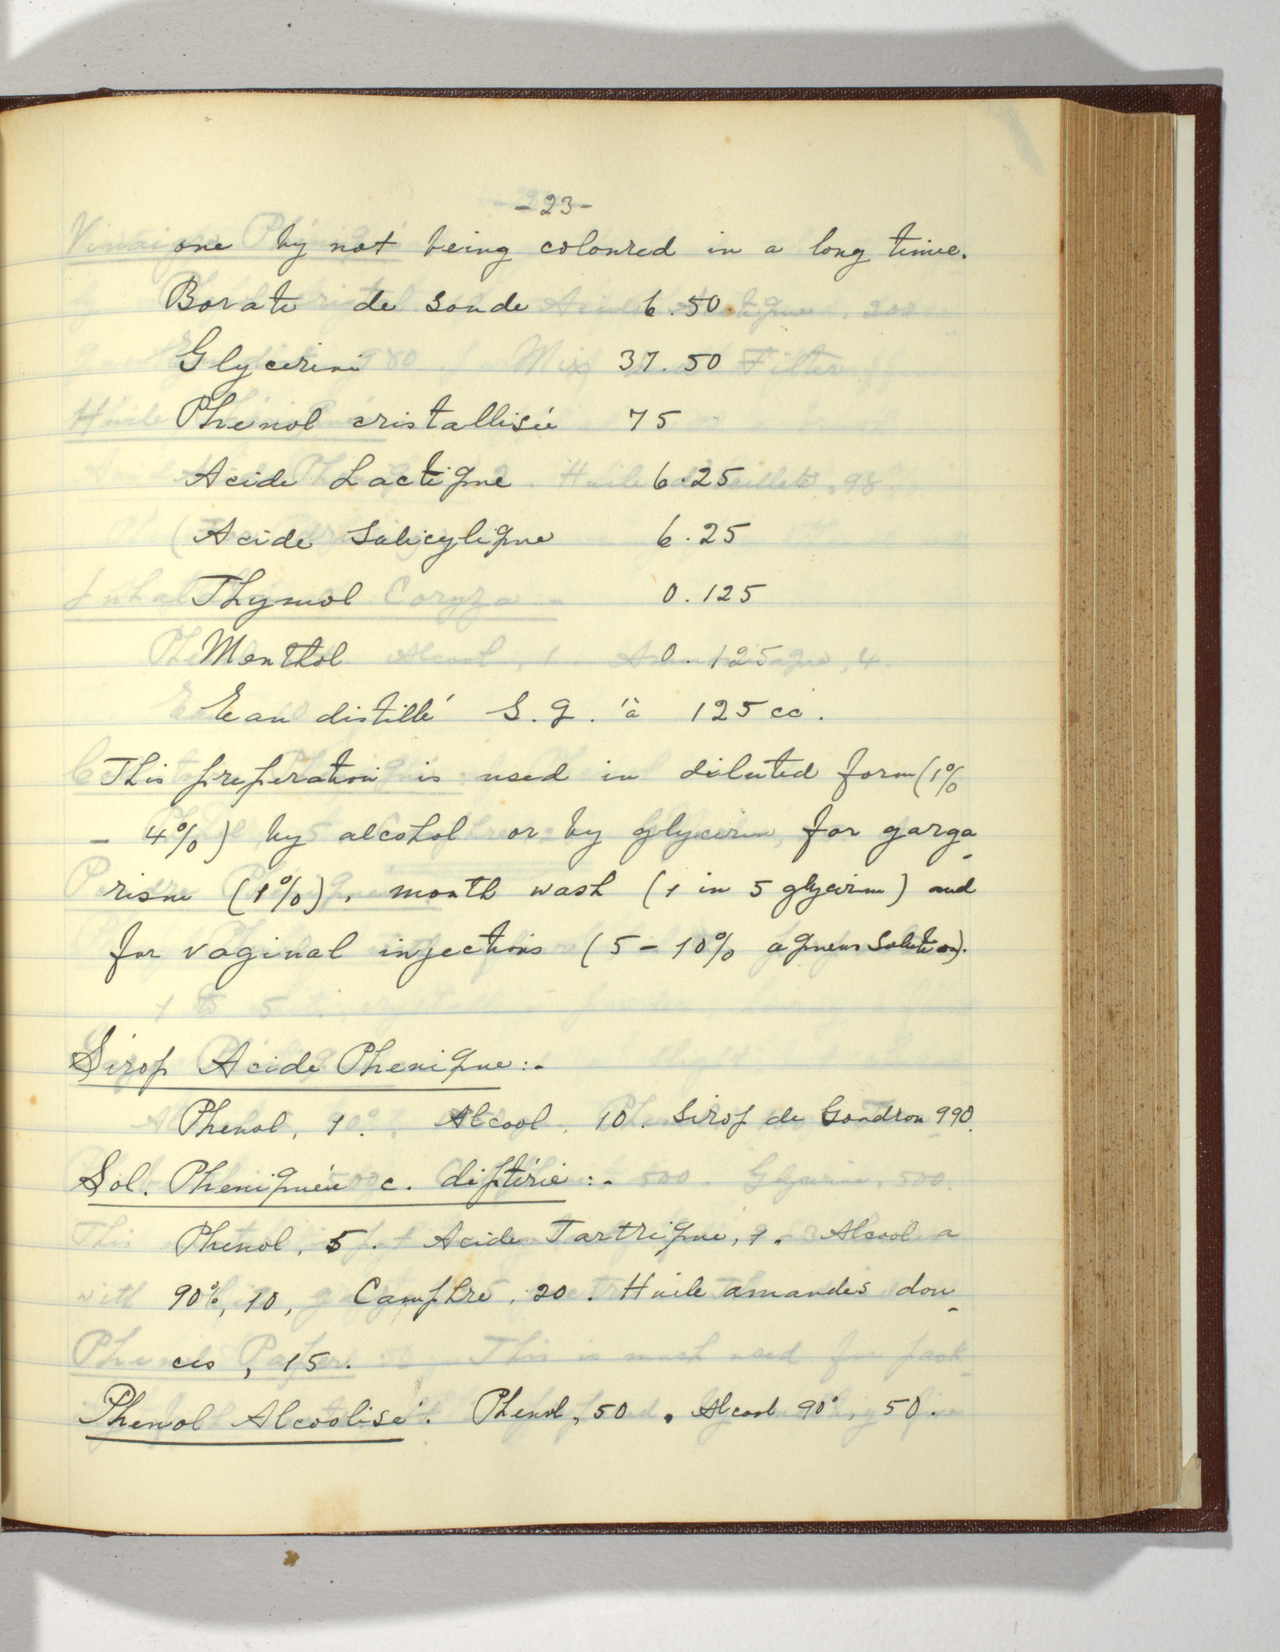 -23-
one by not being coloured in a long time.
Borate de Soude 6.50
Glycerin 37.50
Phénol cristallisée 75
Acide Lactique 6.25
(Acide Salicylique 6.25
Thymol 0.125
Menthol 0.125
Eau distillé S.q. à 125 cc.
This preperation is used in diluted form (1%
- 4%) by alcohol or by glycerin, for garga-
risme (1%), mouth wash (1 in 5 glycerine) and
for vaginal injections (5-10% aqueus Solution).
Sirop Acide Phenique:-
Phenol, 1. Alcool, 10. Sirop de Goudron 990.
Sol. Pheniquée c. diftérie:-
Phenol, 5. Acide Tartrique, 1. Alcool a
90%, 10, Camphre, 20. Huile amandes dou-
ces, 15.
Phenol Alcoolisé. Phenol, 50. Alcool 90°, 50.